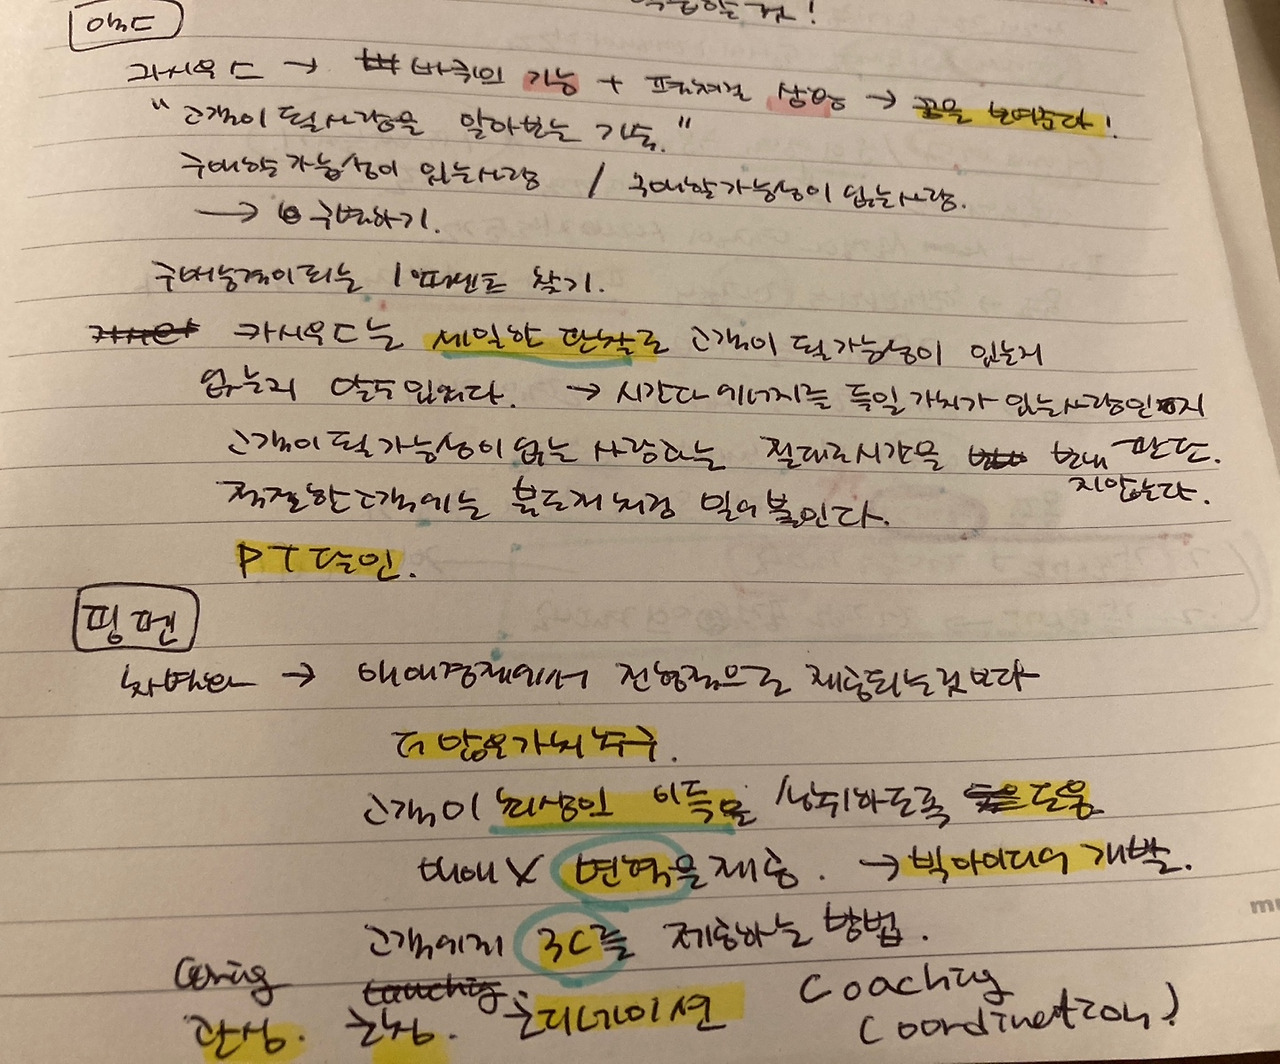 야드
카시우드 → 바퀴의 기능 + 프로처럼 상응 → 꿈을 보여준다!
"고객이 될 사람을 알아보는 기술."
구매할 가능성이 있는 사람 / 구매할 가능성이 없는 사람.
→ 구별하기.
구매능력이 되는 1퍼센트 찾기.
카시우드는 세밀한 관찰로 고객이 될 가능성이 있는지
없는지 알 수 있었다. → 시간과 에너지를 들일 가치가 있는 사람인지
고객이 될 가능성이 없는 사람과는 절대로 시간을 보내 판단.
지 않는다.
적절한 고객에는 불도저처럼 밀어붙인다.
PT 달인.
핑멘
차별화 → 매매경제에서 전형적으로 제공되는 것보다
더 많은 가치 추구.
고객이 최상의 이득을 성취하도록 도움
매매 X 변혁을 제공. → 빅 아이디어 개발.
고객에게 3C를 제공하는 방법.
Caring Coaching
관심. 코칭. 코디네이션 Coordination?